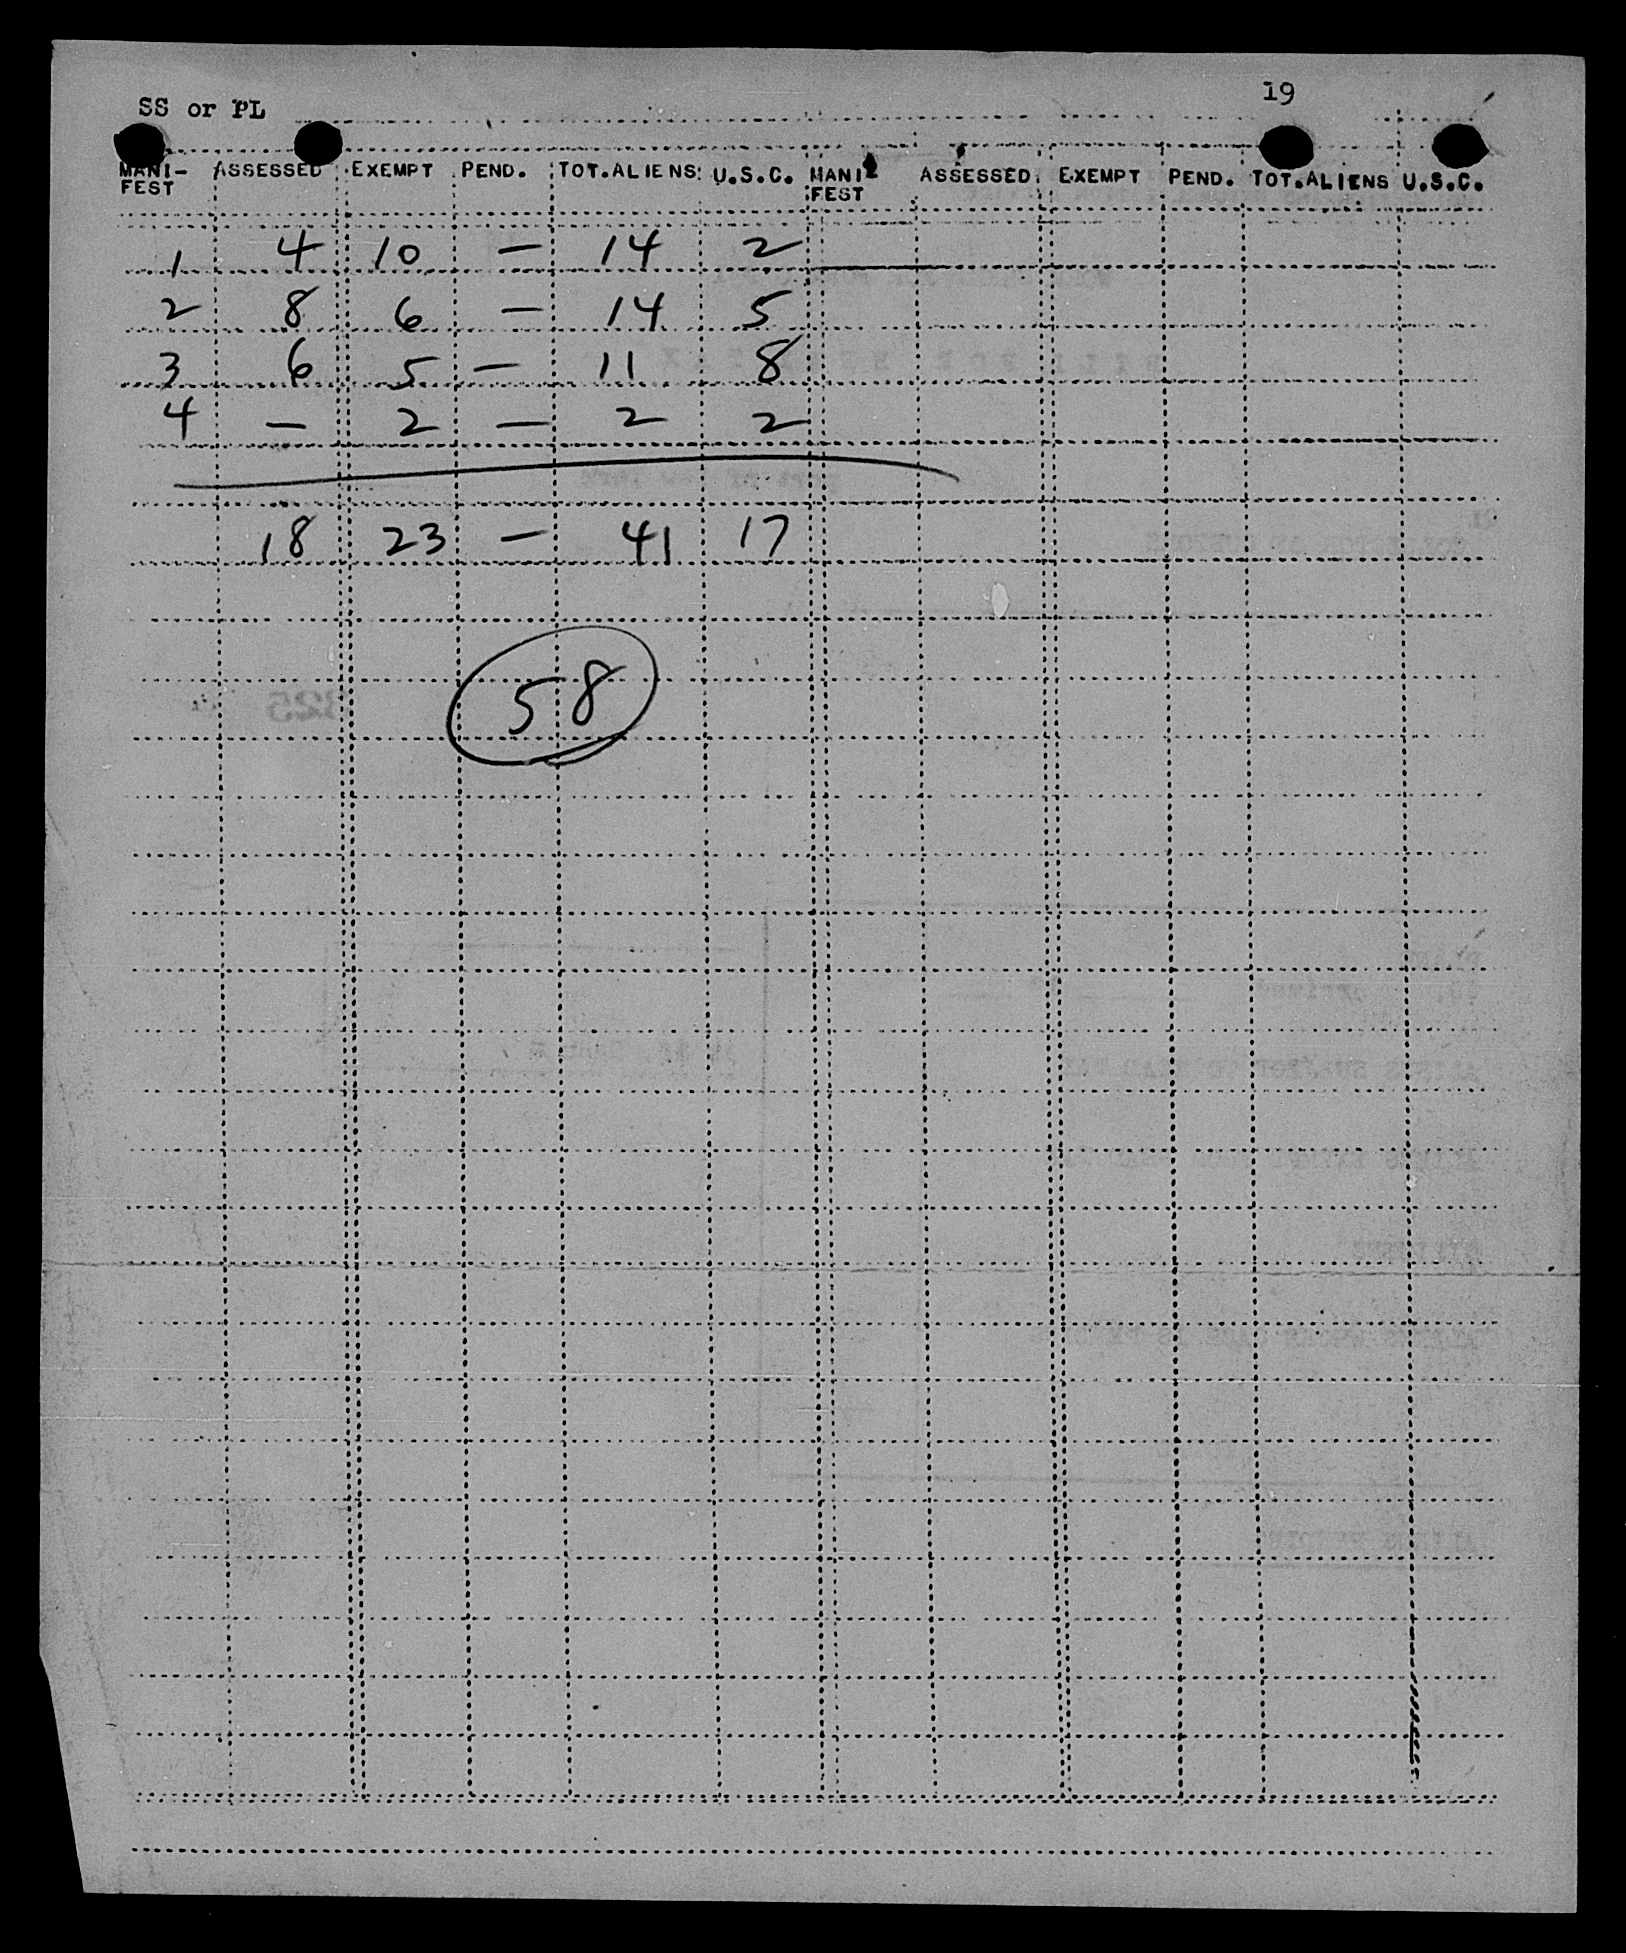 19
SS or PL
MANI- ASSESSED EXEMPT PEND. TOT.ALIENS U.S.C. MANI- ASSESSED EXEMPT PEND. TOT.ALIENS U.S.C.
FEST FEST
1 4 10 — 14 2
2 8 6 — 14 5
3 6 5 — 11 8
4 — 2 — 2 2
18 23 — 41 17
58